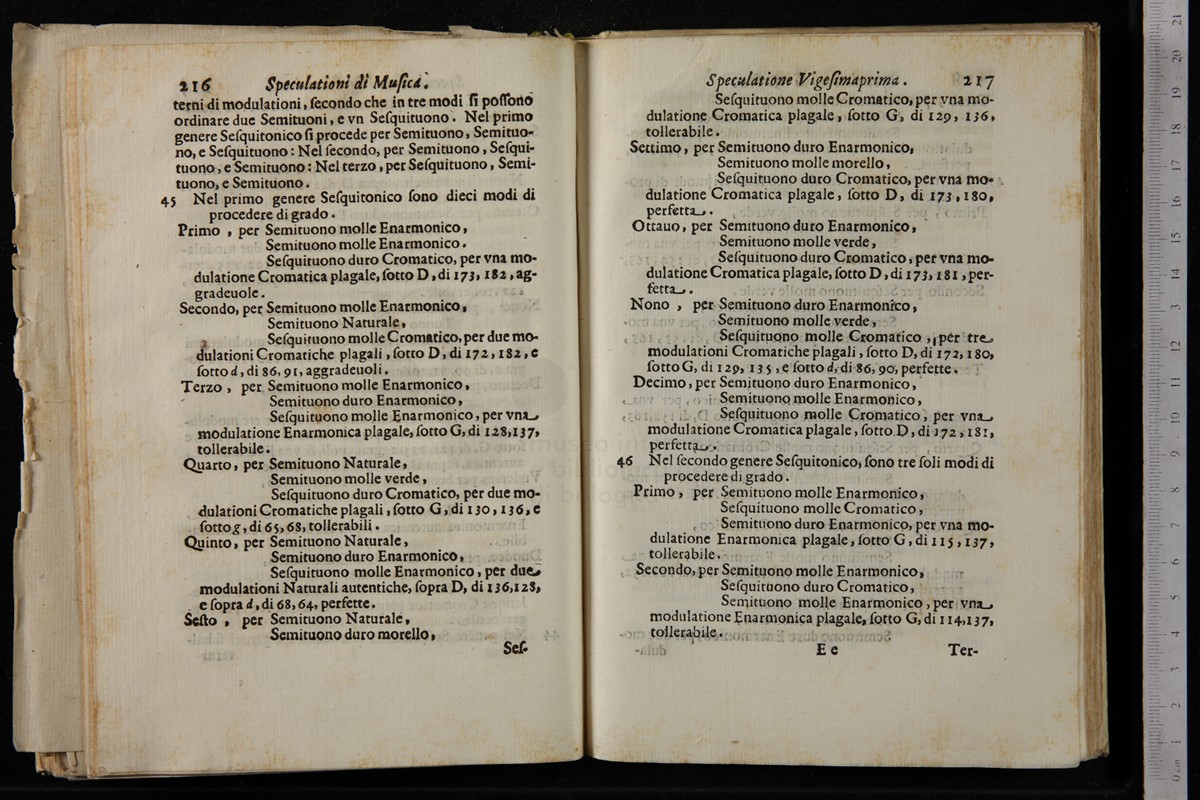 216 Speculationi di Musica.
terni di modulationi, ſecondo che in tre modi ſi poſſono
ordinare due Semituoni, e vn Seſquituono. Nel primo
genere Seſquitonico ſi procede per Semituono, Semituo-
no, e Seſquituono: Nel ſecondo, per Semituono, Seſqui-
tuono, e Semituono: Nel terzo, per Seſquituono, Semi-
tuono, e Semituono.
45 Nel primo genere Seſquitonico ſono dieci modi di
procedere di grado.
Primo, per Semituono molle Enarmonico,
Semituono molle Enarmonico.
Seſquituono duro Cromatico, per vna mo-
dulatione Cromatica plagale, ſotto D, di 173, 182, ag-
gradeuole.
Secondo, per Semituono molle Enarmonico,
Semituono Naturale,
Seſquituono molle Cromatico, per due mo-
dulationi Cromatiche plagali, ſotto D, di 172, 182, e
ſotto d, di 86, 91, aggradeuoli.
Terzo, per Semituono molle Enarmonico,
Semituono duro Enarmonico,
Seſquituono molle Enarmonico, per vna
modulatione Enarmonica plagale, ſotto G, di 128, 137,
tollerabile.
Quarto, per Semituono Naturale,
Semituono molle verde,
Seſquituono duro Cromatico, per due mo-
dulationi Cromatiche plagali, ſotto G, di 130, 136, e
ſotto g, di 65, 68, tollerabili.
Quinto, per Semituono Naturale,
Semituono duro Enarmonico,
Seſquituono molle Enarmonico, per due
modulationi Naturali autentiche, ſopra D, di 136, 128,
e ſopra d, di 68, 64, perfette.
Seſto, per Semituono Naturale,
Semituono duro morello,
Seſ-
Speculatione Vigeſimaprima. 217
Seſquituono molle Cromatico, per vna mo-
dulatione Cromatica plagale, ſotto G, di 129, 136,
tollerabile.
Settimo, per Semituono duro Enarmonico,
Semituono molle morello,
Seſquituono duro Cromatico, per vna mo-
dulatione Cromatica plagale, ſotto D, di 173, 180,
perfetta.
Ottauo, per Semituono duro Enarmonico,
Semituono molle verde,
Seſquituono duro Cromatico, per vna mo-
dulatione Cromatica plagale, ſotto D, di 173, 181, per-
fetta.
Nono, per Semituono duro Enarmonico,
Semituono molle verde,
Seſquituono molle Cromatico, per tre
modulationi Cromatiche plagali, ſotto D, di 172, 180,
ſotto G, di 129, 135, e ſotto d, di 86, 90, perfette.
Decimo, per Semituono duro Enarmonico,
Semituono molle Enarmonico,
Seſquituono molle Cromatico, per vna
modulatione Cromatica plagale, ſotto D, di 172, 181,
perfetta.
46 Nel ſecondo genere Seſquitonico, ſono tre ſoli modi di
procedere di grado.
Primo, per Semituono molle Enarmonico,
Seſquituono molle Cromatico,
Semituono duro Enarmonico, per vna mo-
dulatione Enarmonica plagale, ſotto G, di 115, 137,
tollerabile.
Secondo, per Semituono molle Enarmonico,
Seſquituono duro Cromatico,
Semituono molle Enarmonico, per vna
modulatione Enarmonica plagale, ſotto G, di 114, 137,
tollerabile.
E e Ter-